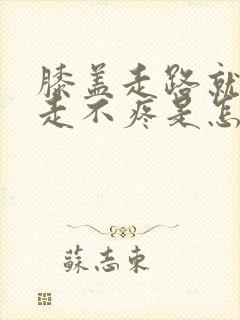 膝盖走路就
走不疼是怎
蘇志東